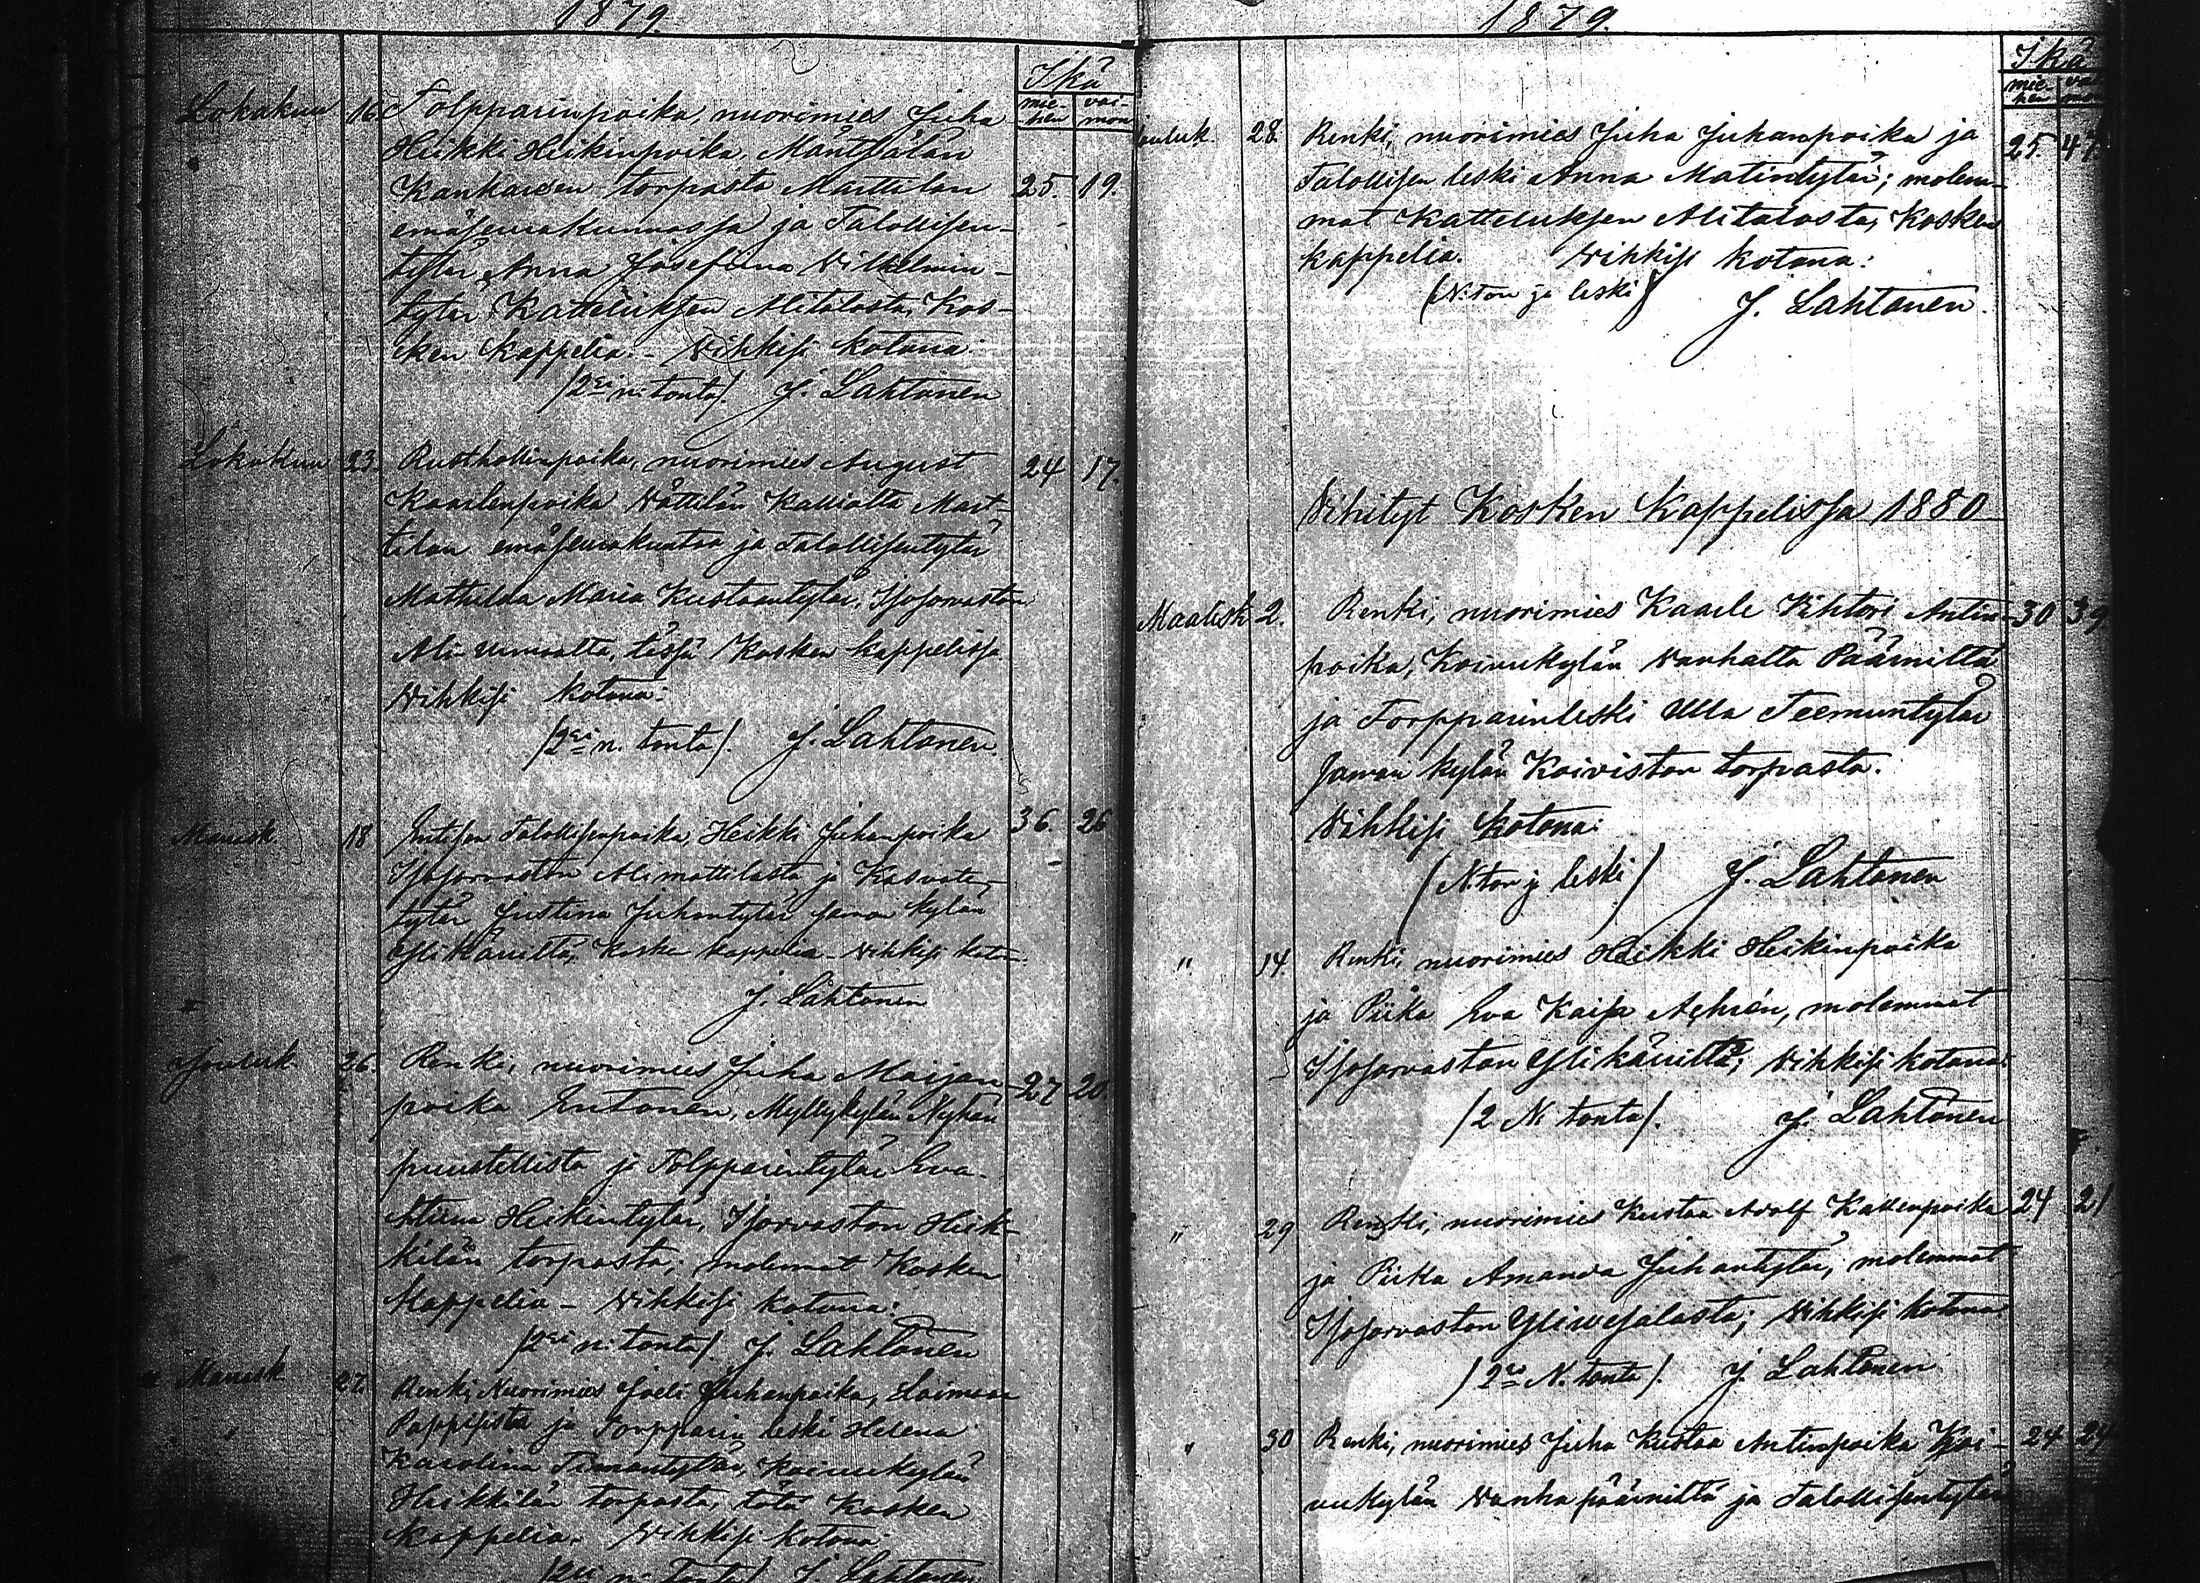 1879.
Ikä
mie- vai-
hen mon
Lokakuu 16. Tolpparinpoika, nuorimies Juha
Heikki Heikinpoika, Mäntsälän
Kankareen torpasta Marttilan 25. 19.
emäseurakunnassa ja Talollisen-
tytär Anna Josefiina Vilhelmin-
tytär Katteluksen Alitalosta, Kos-
ken Kappelia. - Vihkisi kotona:
/2si n: tonta/. J. Lahtonen
Lokakuu 23. Rusthollinpoika, nuorimies August 24 17.
Kaarlenpoika Vättilän Kallialta Mart-
tilan emäseurakuntaa ja Talollisentytär
Mathilda Maria Kustaantytär, Isosorvaston
Ali, tässä Kosken kappelissa.
Vihkisi kotona:
/2si n. tonta/. J. Lahtonen
Marrask. 18 Entisen Talollisenpoika, Heikki Juhanpoika 36. 26
Isosorvaston Alimattilasta ja Kasvate-
tytär Justina Juhantytär Sawen kylän
Ylikäuiltä, Kosken kappelia. Vihkisi koto:
J. Lahtonen
Jouluk. 26. Renki, nuorimies Juha Maijan- 27 20
poika Entonen, Myllykylän Nyhan
puustellista ja Tolpparintytär Eva
Stiina Heikintytär, Isosorvaston Heik-
kilän torpasta; molemat Kosken
Kappelia - Vihkisi kotona:
/2si n: tonta/. J. Lahtonen
Marrask 27. Renki, Nuorimies Joeli Juhanpoika, Loimaan
Pappisista ja Torpparin leski Helena
Karolina Teemuntytär, Koivukylän
Heikkilän torpasta, tätä Kosken
Kappelia. Vihkisi kotona:
/2si n. Tonta/ J. Lahtonen
1879.
Ikä
mie- vai-
hen mon
Jouluk. 28. Renki, nuorimies Juha Juhanpoika ja 25. 47.
Talollisen leski Anna Matintytär; molem-
mat Katteluksen Alitalosta, Kosken
kappelia. Vihkisi kotona:
(N:ton ja leski) J. Lahtonen.
Vihityt Kosken Kappelissa 1880
Maalisk 2. Renki, nuorimies Kaarle Vihtori Antin- 30 39
poika, Koivukylän Vanhalta Päärniltä
ja Torpparinleski Ulla Teemuntytär
Sawen kylän Koiviston torpasta.
Vihkisi kotona:
(N:ton ja leski) J. Lahtonen
" 14. Renki, nuorimies Heikki Heikinpoika
ja Piika Eva Kaisa Achrén, molemmat
Isosorvaston Ylikäuiltä; Vihkisi kotona:
/2 N. tonta/. J. Lahtonen
" 29 Renki, nuorimies Kustaa Adolf Kallenpoika 24 21
ja Piika Amanda Juhantytär, molemmat
Isosorvaston Yliwesalasta; Vihkisi kotona
/2si N. tonta/. J. Lahtonen
" 30 Renki, nuorimies Juha Kustaa Antinpoika Koi- 24 24
vukylän Vanha päärniltä ja Talollisentytär